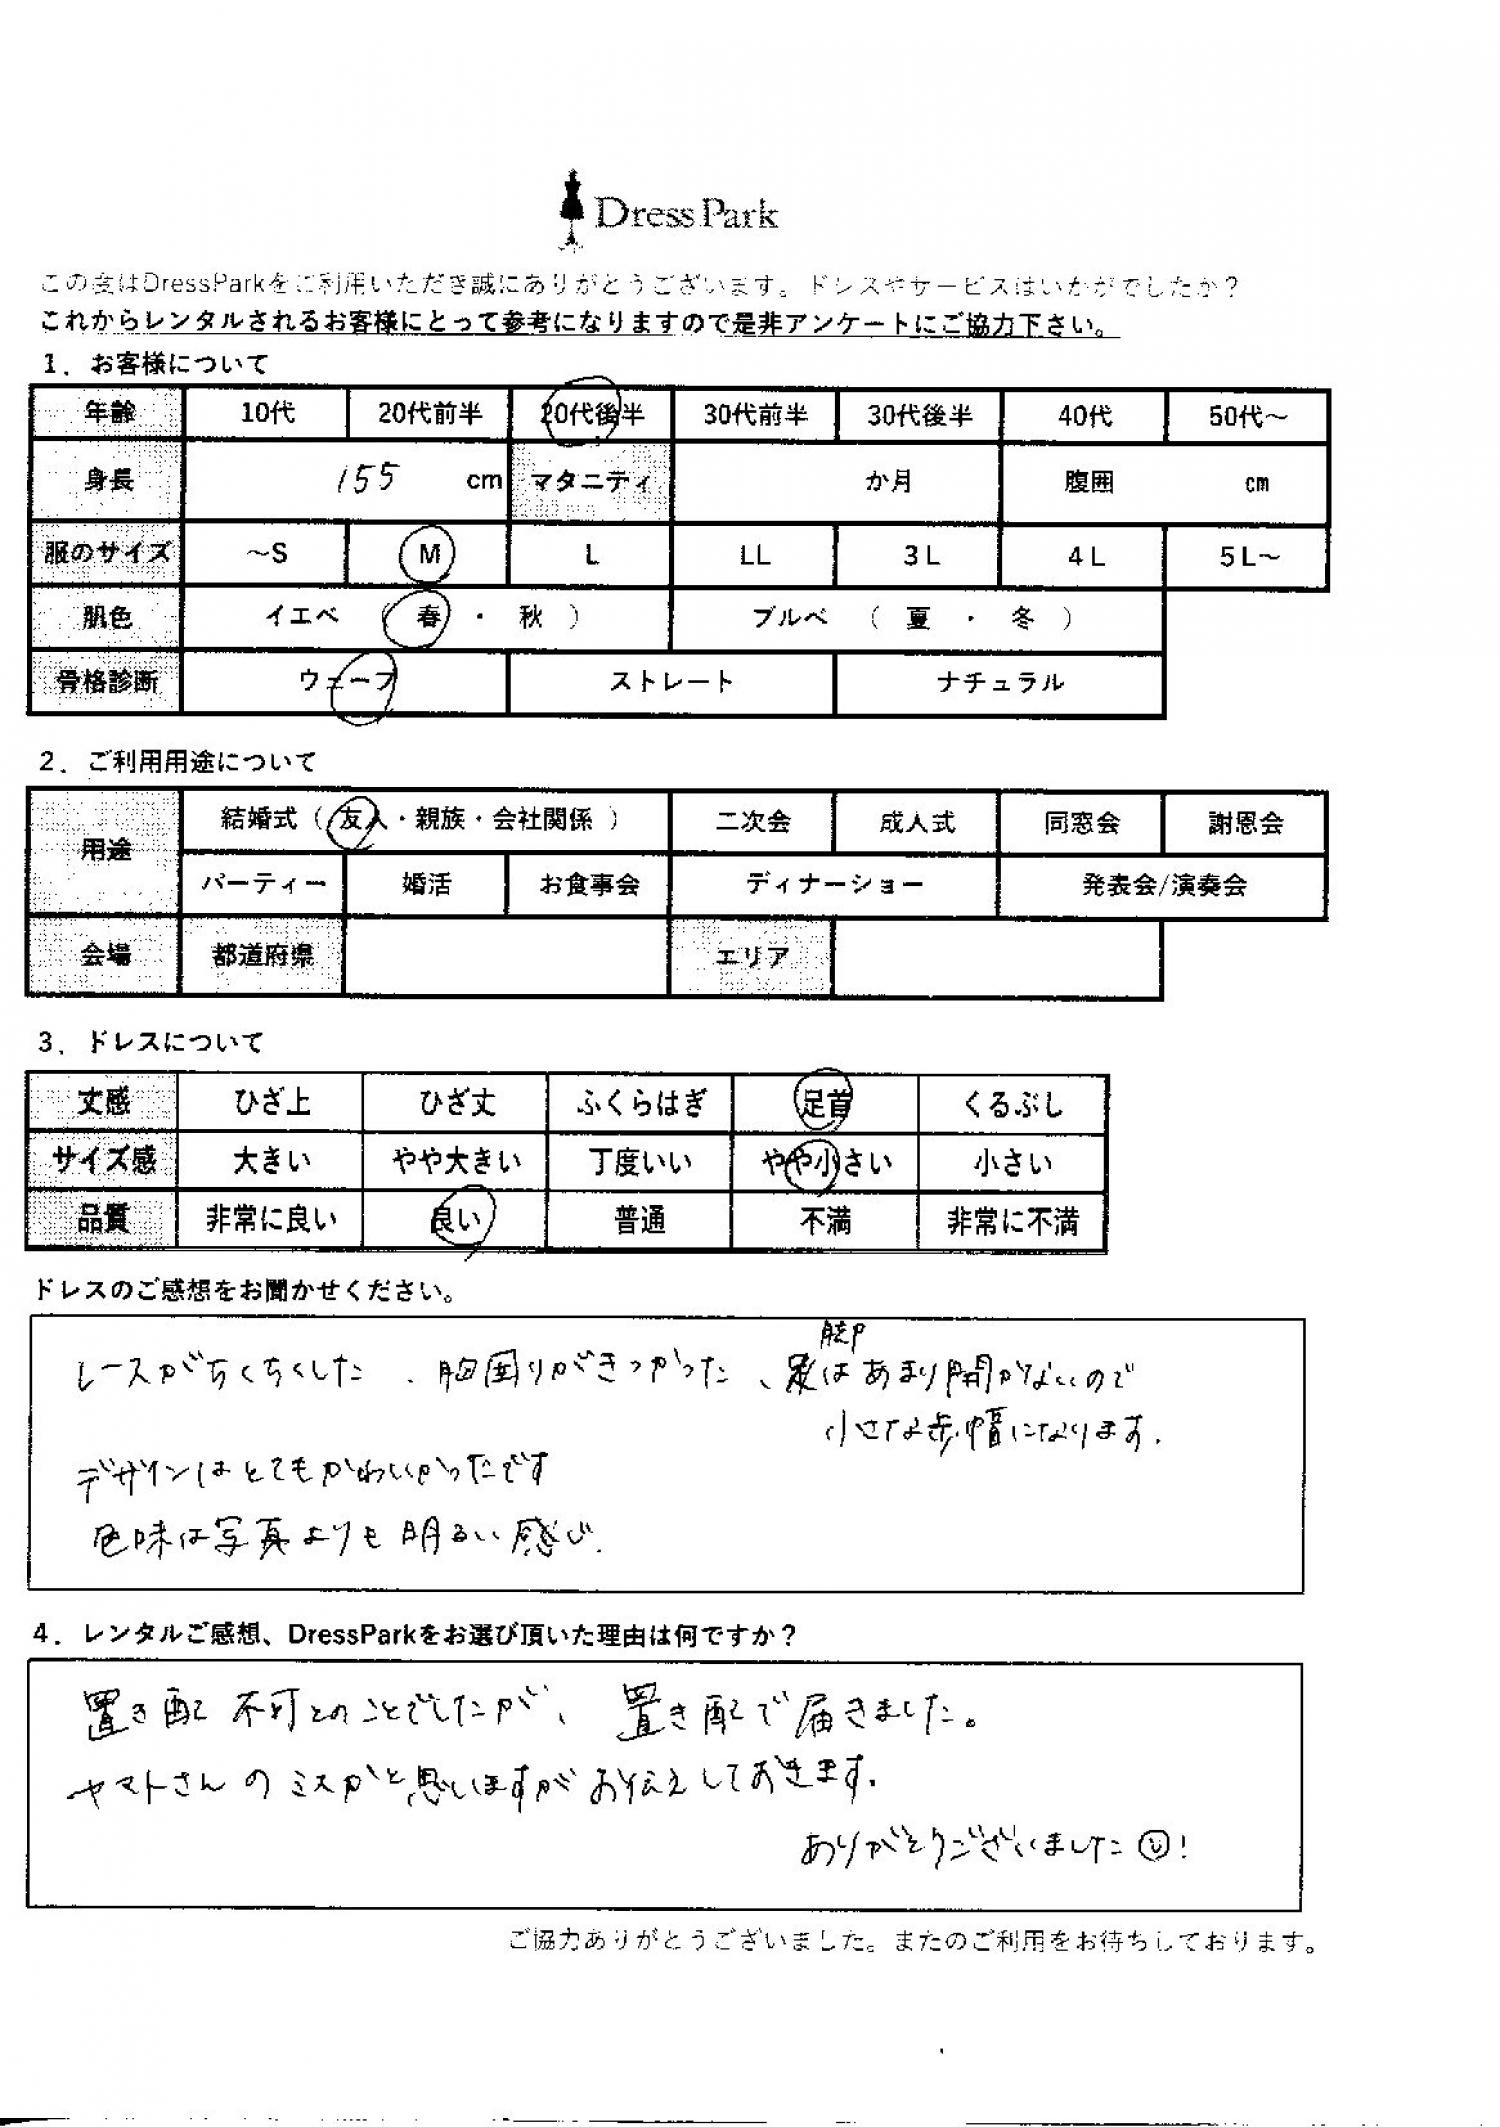 DressPark
この度はDressParkをご利用いただき誠にありがとうございます。ドレスやサービスはいかがでしたか?
これからレンタルされるお客様にとって参考になりますので是非アンケートにご協力下さい。
1．お客様について
年齢 10代 20代前半 20代後半 30代前半 30代後半 40代 50代～
身長 155 cm マタニティ か月 腹囲 cm
服のサイズ ～S M L LL 3L 4L 5L～
肌色 イエベ （ 春 ・ 秋 ） ブルベ （ 夏 ・ 冬 ）
骨格診断 ウェーブ ストレート ナチュラル
2．ご利用用途について
用途 結婚式（ 友人・親族・会社関係 ） 二次会 成人式 同窓会 謝恩会
パーティー 婚活 お食事会 ディナーショー 発表会/演奏会
会場 都道府県 エリア
3．ドレスについて
丈感 ひざ上 ひざ丈 ふくらはぎ 足首 くるぶし
サイズ感 大きい やや大きい 丁度いい やや小さい 小さい
品質 非常に良い 良い 普通 不満 非常に不満
ドレスのご感想をお聞かせください。
レースがちくちくした、胸囲りがきつかった、脚はあまり開かないので
小さな歩幅になります.
デザインはとてもかわいかったです
色味は写真よりも明るい感じ.
4．レンタルご感想、DressParkをお選び頂いた理由は何ですか?
置き配不可とのことでしたが、置き配で届きました。
ヤマトさんのミスかと思いますがお伝えしておきます.
ありがとうございました☺!
ご協力ありがとうございました。またのご利用をお待ちしております。